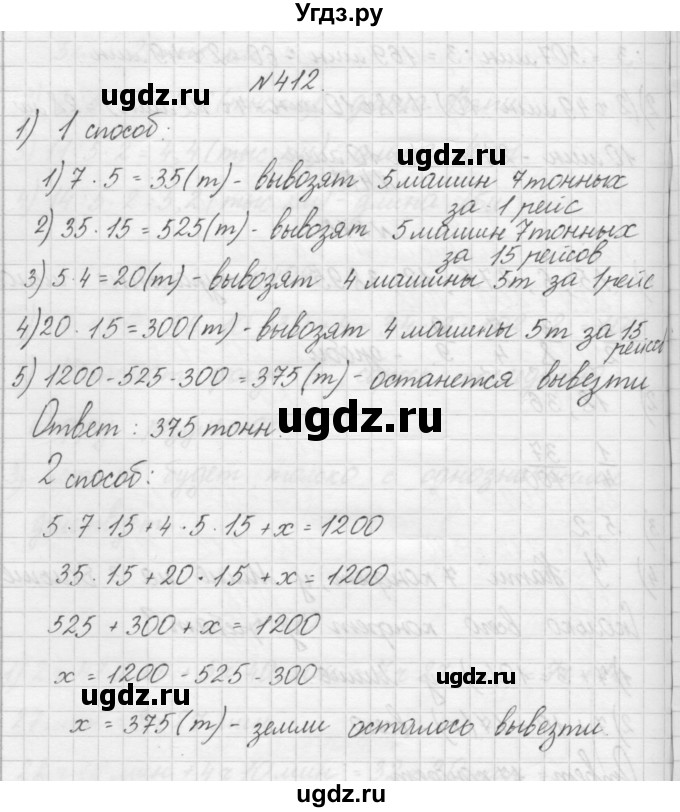 Угдз.ру
№412.
1) 1 способ:
1) 7 · 5 = 35 (т) - вывозят 5 машин 7 тонных
за 1 рейс
2) 35 · 15 = 525 (т) - вывозят 5 машин 7 тонных
за 15 рейсов
3) 5 · 4 = 20 (т) - вывозят 4 машины 5т за 1 рейс
4) 20 · 15 = 300 (т) - вывозят 4 машины 5т за 15
рейсов
5) 1200 - 525 - 300 = 375 (т) - останется вывезти
Ответ: 375 тонн.
2 способ:
5 · 7 · 15 + 4 · 5 · 15 + x = 1200
35 · 15 + 20 · 15 + x = 1200
525 + 300 + x = 1200
x = 1200 - 525 - 300
x = 375 (т) - земли осталось вывезти.
ugdz.ru
ugdz.ru
ugdz.ru
ugdz.ru
ugdz.ru
ugdz.ru
ugdz.ru
ugdz.ru